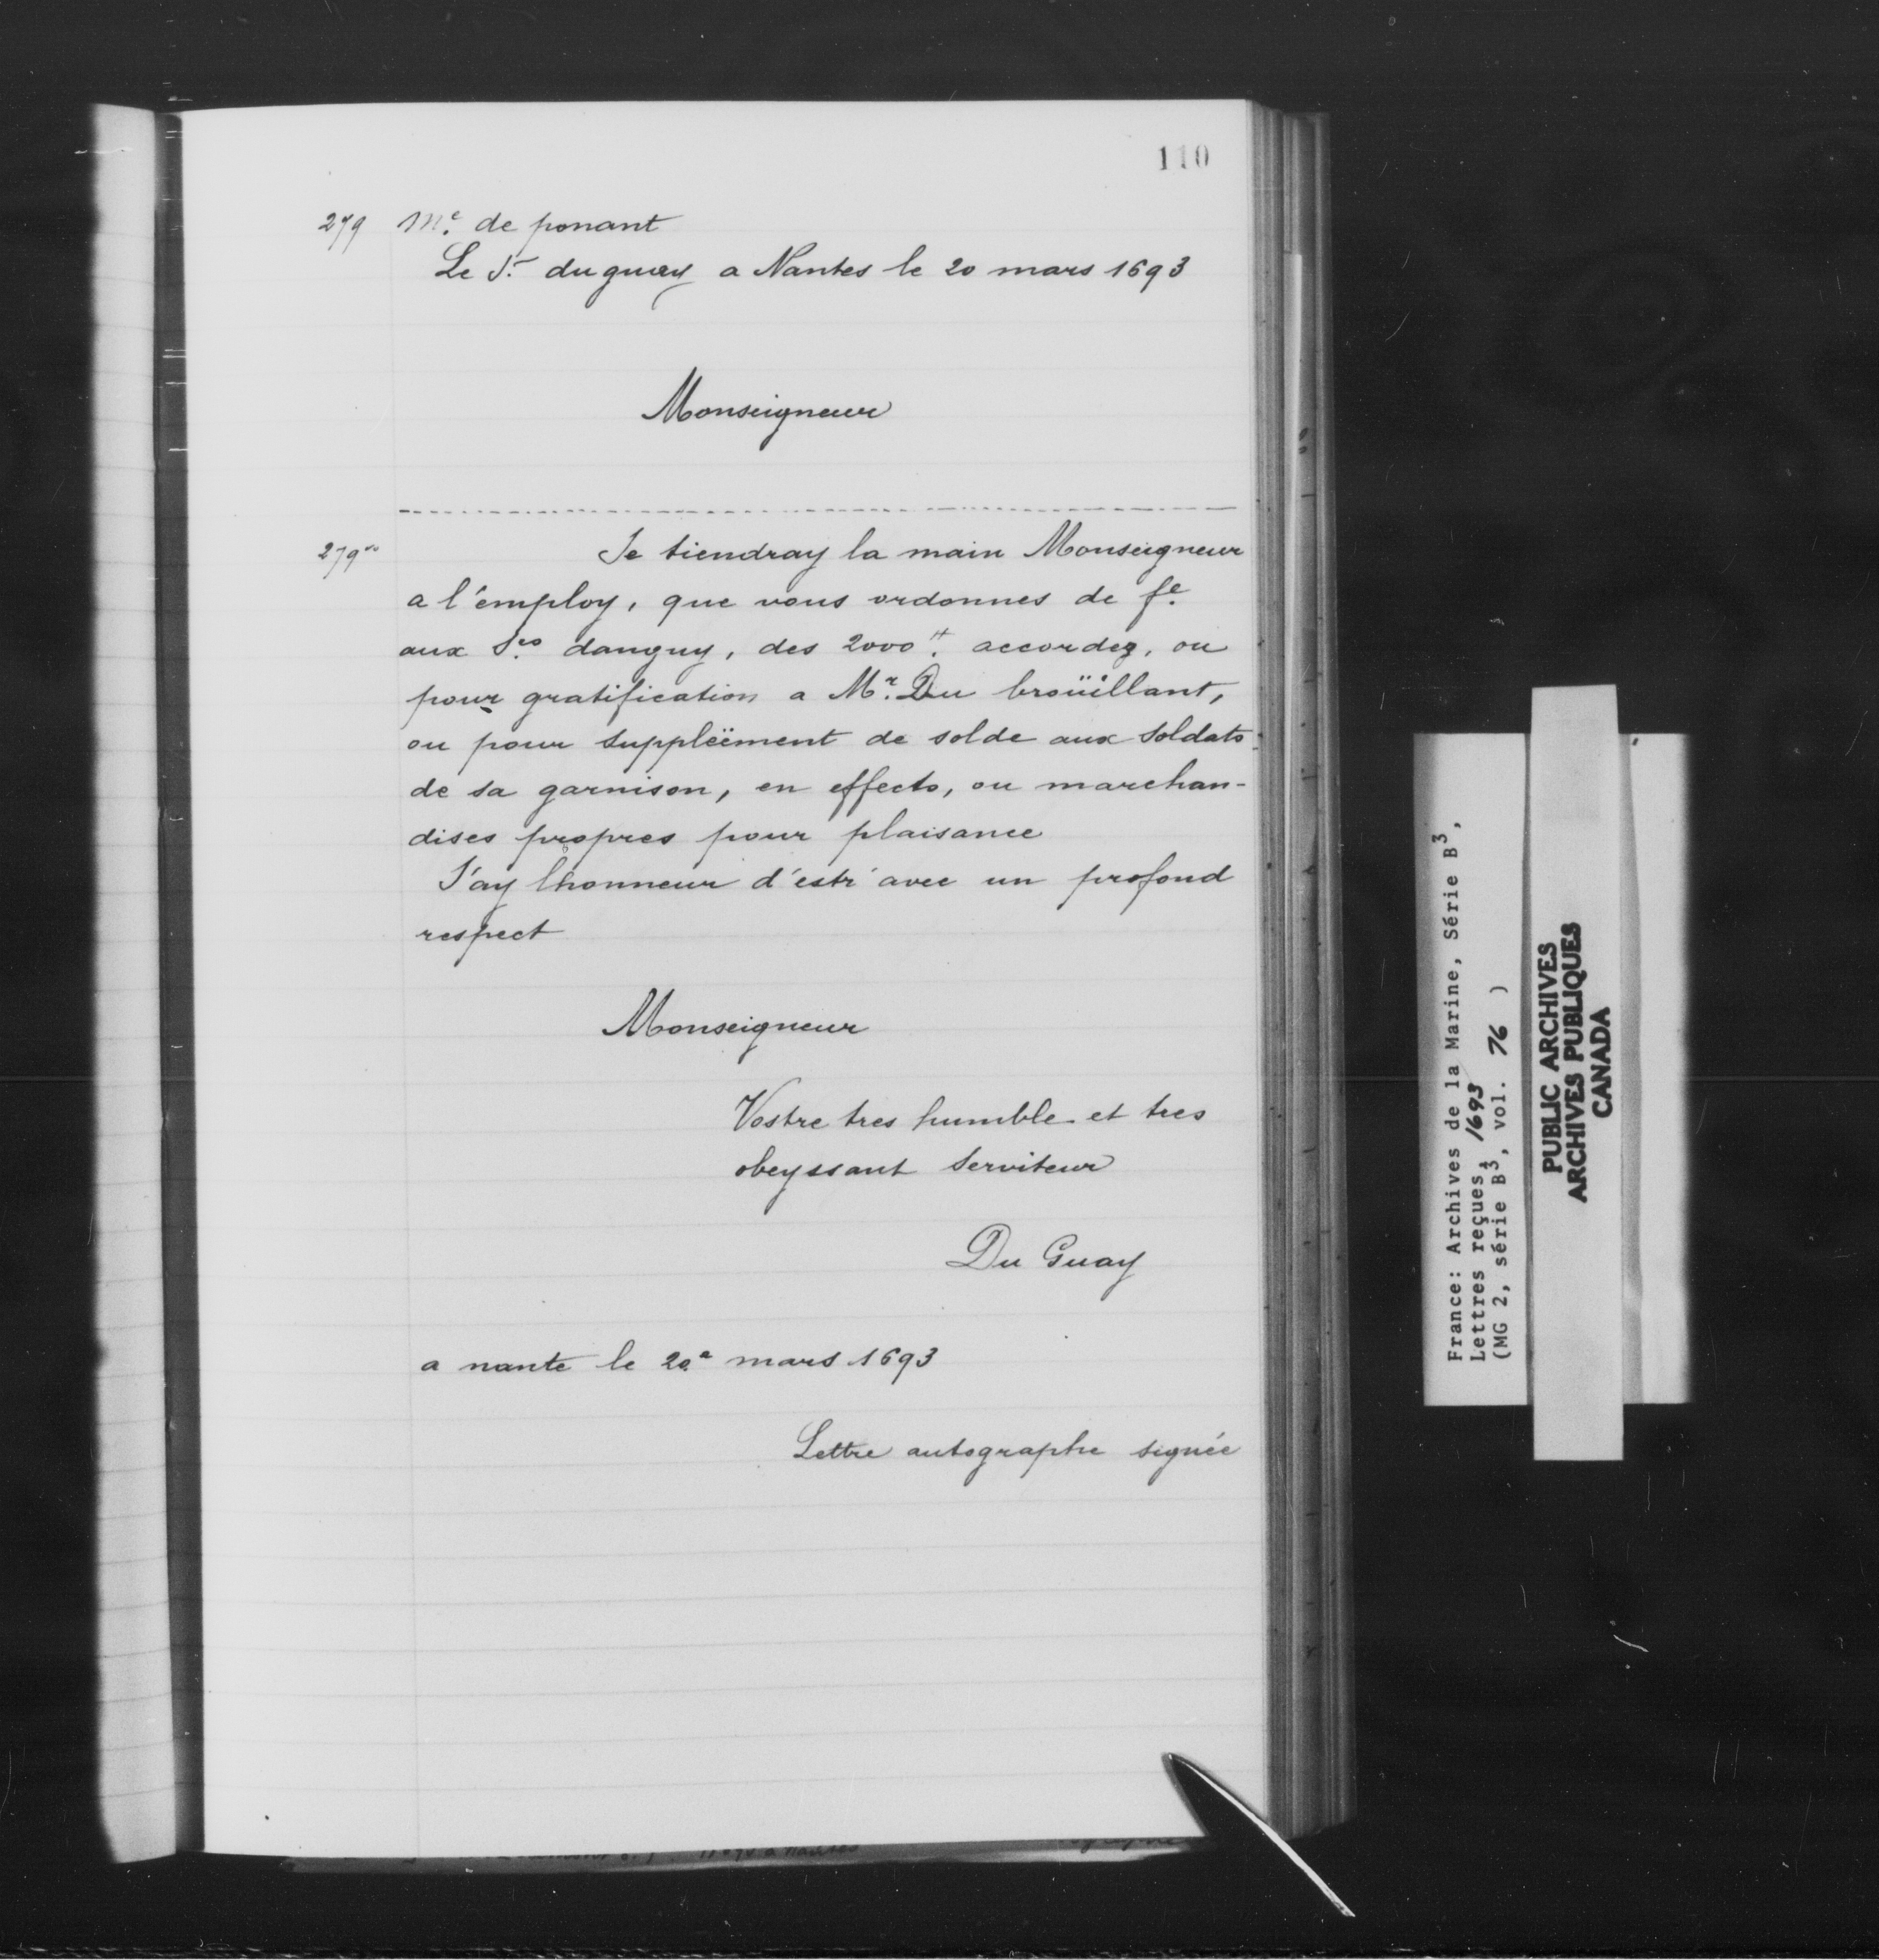 110
279 Mᵉ. de ponant
Le Sʳ. duguay a Nantes le 20 mars 1693
Monseigneur
279ᵛᵒ Je tiendray la main Monseigneur
a l'employ, que vous ordonnes de fᵉ.
aux Sʳˢ danguy, des 2000ᵗᵗ. accordez, ou
pour gratification a Mʳ. Du broüillant,
ou pour supplëment de solde aux soldats
de sa garnison, en effects, ou marchan-
dises propres pour plaisance
J'ay lhonneur d'estr' avec un profond
respect
Monseigneur
Vostre tres humble et tres
obeyssant serviteur
Du Guay
a nante le 20ᵉ mars 1693
Lettre autographe signée
France: Archives de la Marine, Série B³,
Lettres reçues, 1693
(MG 2, série B³, vol. 76 )
PUBLIC ARCHIVES
ARCHIVES PUBLIQUES
CANADA